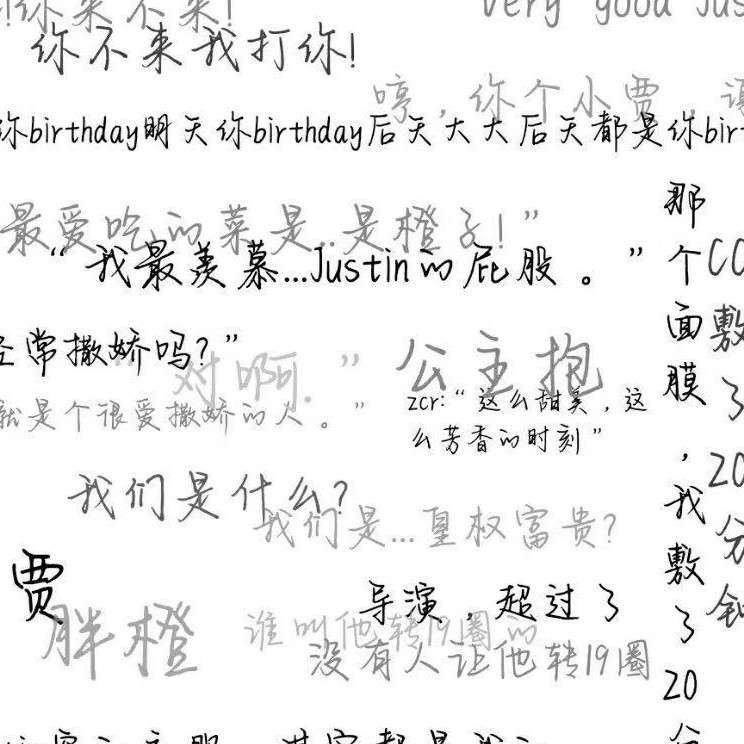 你来不来!
very good Jus
你不来我打你!
哼，你个小贾，
你birthday明天你birthday后天大大后天都是你birt
最爱吃的菜是..是橙子!”
“我最羡慕...Justin的屁股。”
经常撒娇吗?”
“对啊.”
公主抱
就是个很爱撒娇的人。”
zcr:“这么甜美，这
么芳香的时刻”
我们是什么?
我们是...皇权富贵?
贾
胖橙
导演，超过了
谁叫他转19圈的
没有人让他转19圈
那个面膜，我敷了20分
CC敷了20分钟